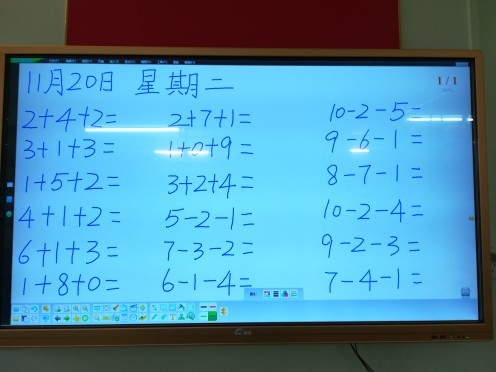 11月20日 星期二
1/1
2+4+2= 2+7+1= 10-2-5=
3+1+3= 1+0+9= 9-6-1=
1+5+2= 3+2+4= 8-7-1=
4+1+2= 5-2-1= 10-2-4=
6+1+3= 7-3-2= 9-2-3=
1+8+0= 6-1-4= 7-4-1=